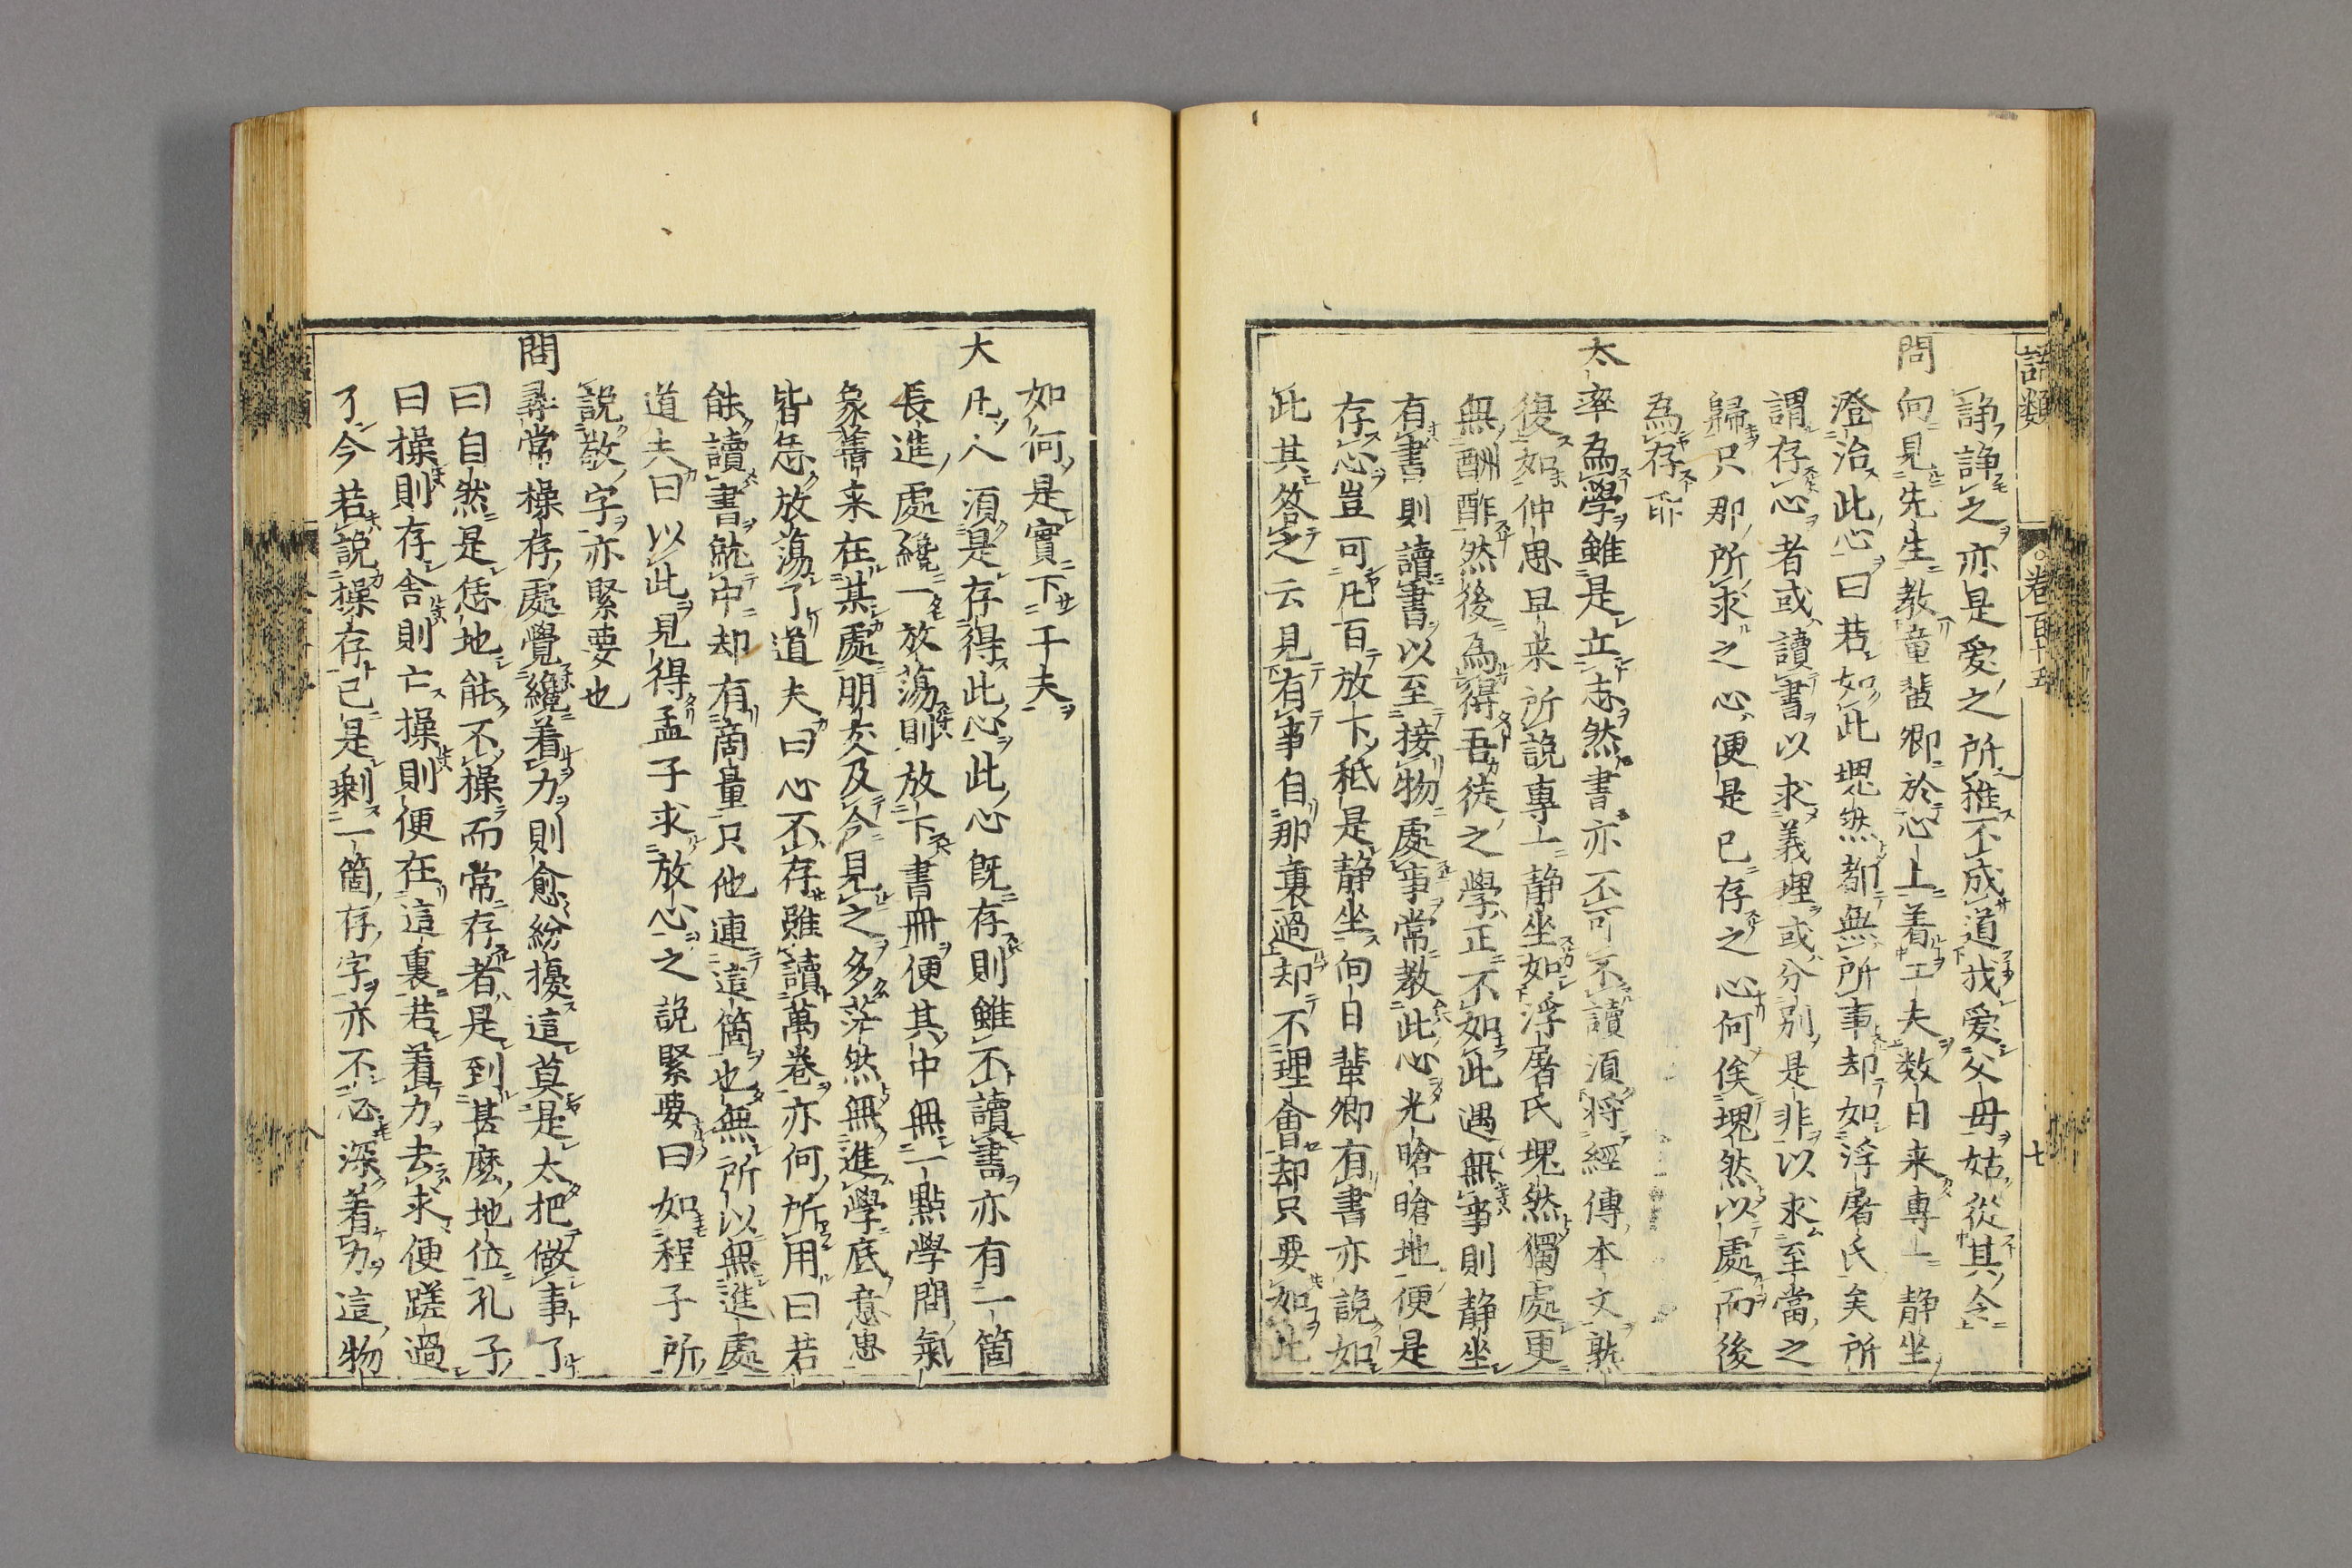 語類
卷百十五
七
諍諍之亦是愛之所推不成道我愛父毋姑從其令
問向見先生教童蜚卿於心上着工夫数日来專一静坐
澄治此心曰若如此塊然都無所事却如浮屠氏矣所
謂存心者或讀書以求義理或分别是非以求至當之
歸只那所求之心便是已存之心何俟塊然以處而後
為存耶
太率為學雖是立志然書亦不可不讀須将經傳本文熟
復如仲思早来所說專一静坐如浮屠氏塊然獨處更
無酬酢然後為得吾徒之學正不如此遇無事則静坐
有書則讀書以至接物處事常教此心光㬒㬒地便是
存心豈可凡百放下秪是静坐向日蜚卿有書亦說如
此其答之云見有事自那裏過却不理會却只要如此
如何是實下干夫
大凡人須是存得此心此心既存則雖不讀書亦有一箇
長進處纔一放蕩則放下書冊便其中無一點學問氣
象舊来在某處朋友及今見之多茫然無進學底意思
皆恁放蕩了道夫曰心不存雖讀萬卷亦何所用曰若
能讀書就中却有商量只他連這箇也無所以無進處
道夫曰以此見得孟子求放心之說緊要曰如程子所
說敬字亦緊要也
問尋常操存處覺纔着力則愈紛擾這莫是太把做事了
曰自然是恁地能不操而常存者是到甚麽地位孔子
曰操則存舍則亡操則便在這裏若着力去求便蹉過
了今若說操存已是剩一箇存字亦不必深着力這物